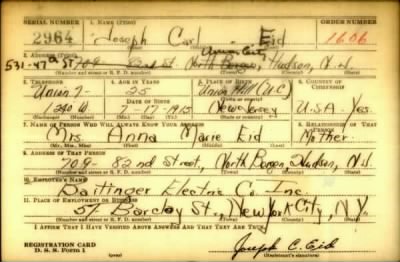 SERIAL NUMBER 1. NAME (Print) ORDER NUMBER
2964 Joseph Carl Eid 1606
(First) (Middle) (Last)
2. ADDRESS (Print) Union City
531-47th St 709 82nd St. North Bergen, Hudson, N.J.
(Number and street or R. F. D. number) (Town) (County) (State)
3. TELEPHONE 4. AGE IN YEARS 5. PLACE OF BIRTH 6. COUNTRY OF CITIZENSHIP
Union 7- 25 Union Hill (U.C.)
DATE OF BIRTH
1340 W. 7-17-1915 New Jersey U.S.A. Yes.
(Exchange) (Number) (Mo.) (Day) (Yr.) (State or country)
7. NAME OF PERSON WHO WILL ALWAYS KNOW YOUR ADDRESS 8. RELATIONSHIP OF THAT PERSON
Mrs Anna Marie Eid Mother
(Mr., Mrs., Miss) (First) (Middle) (Last)
9. ADDRESS OF THAT PERSON
709- 82nd Street, North Bergen Hudson, N.J.
(Number and street or R. F. D. number) (Town) (County) (State)
10. EMPLOYER'S NAME
Electric Co. Inc.
11. PLACE OF EMPLOYMENT OR BUSINESS
57 Barclay St., New York City, N.Y.
(Number and street or R. F. D. number) (Town) (County) (State)
I AFFIRM THAT I HAVE VERIFIED ABOVE ANSWERS AND THAT THEY ARE TRUE.
REGISTRATION CARD
D. S. S. Form 1 (over) Joseph C. Eid
(Registrant's signature)